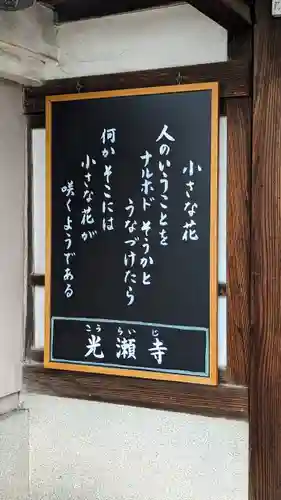 小さな花
人のいうことを
ナルホド そうかと
うなづけたら
何か そこには
小さな花が
咲くようである
こう らい じ
光瀬寺